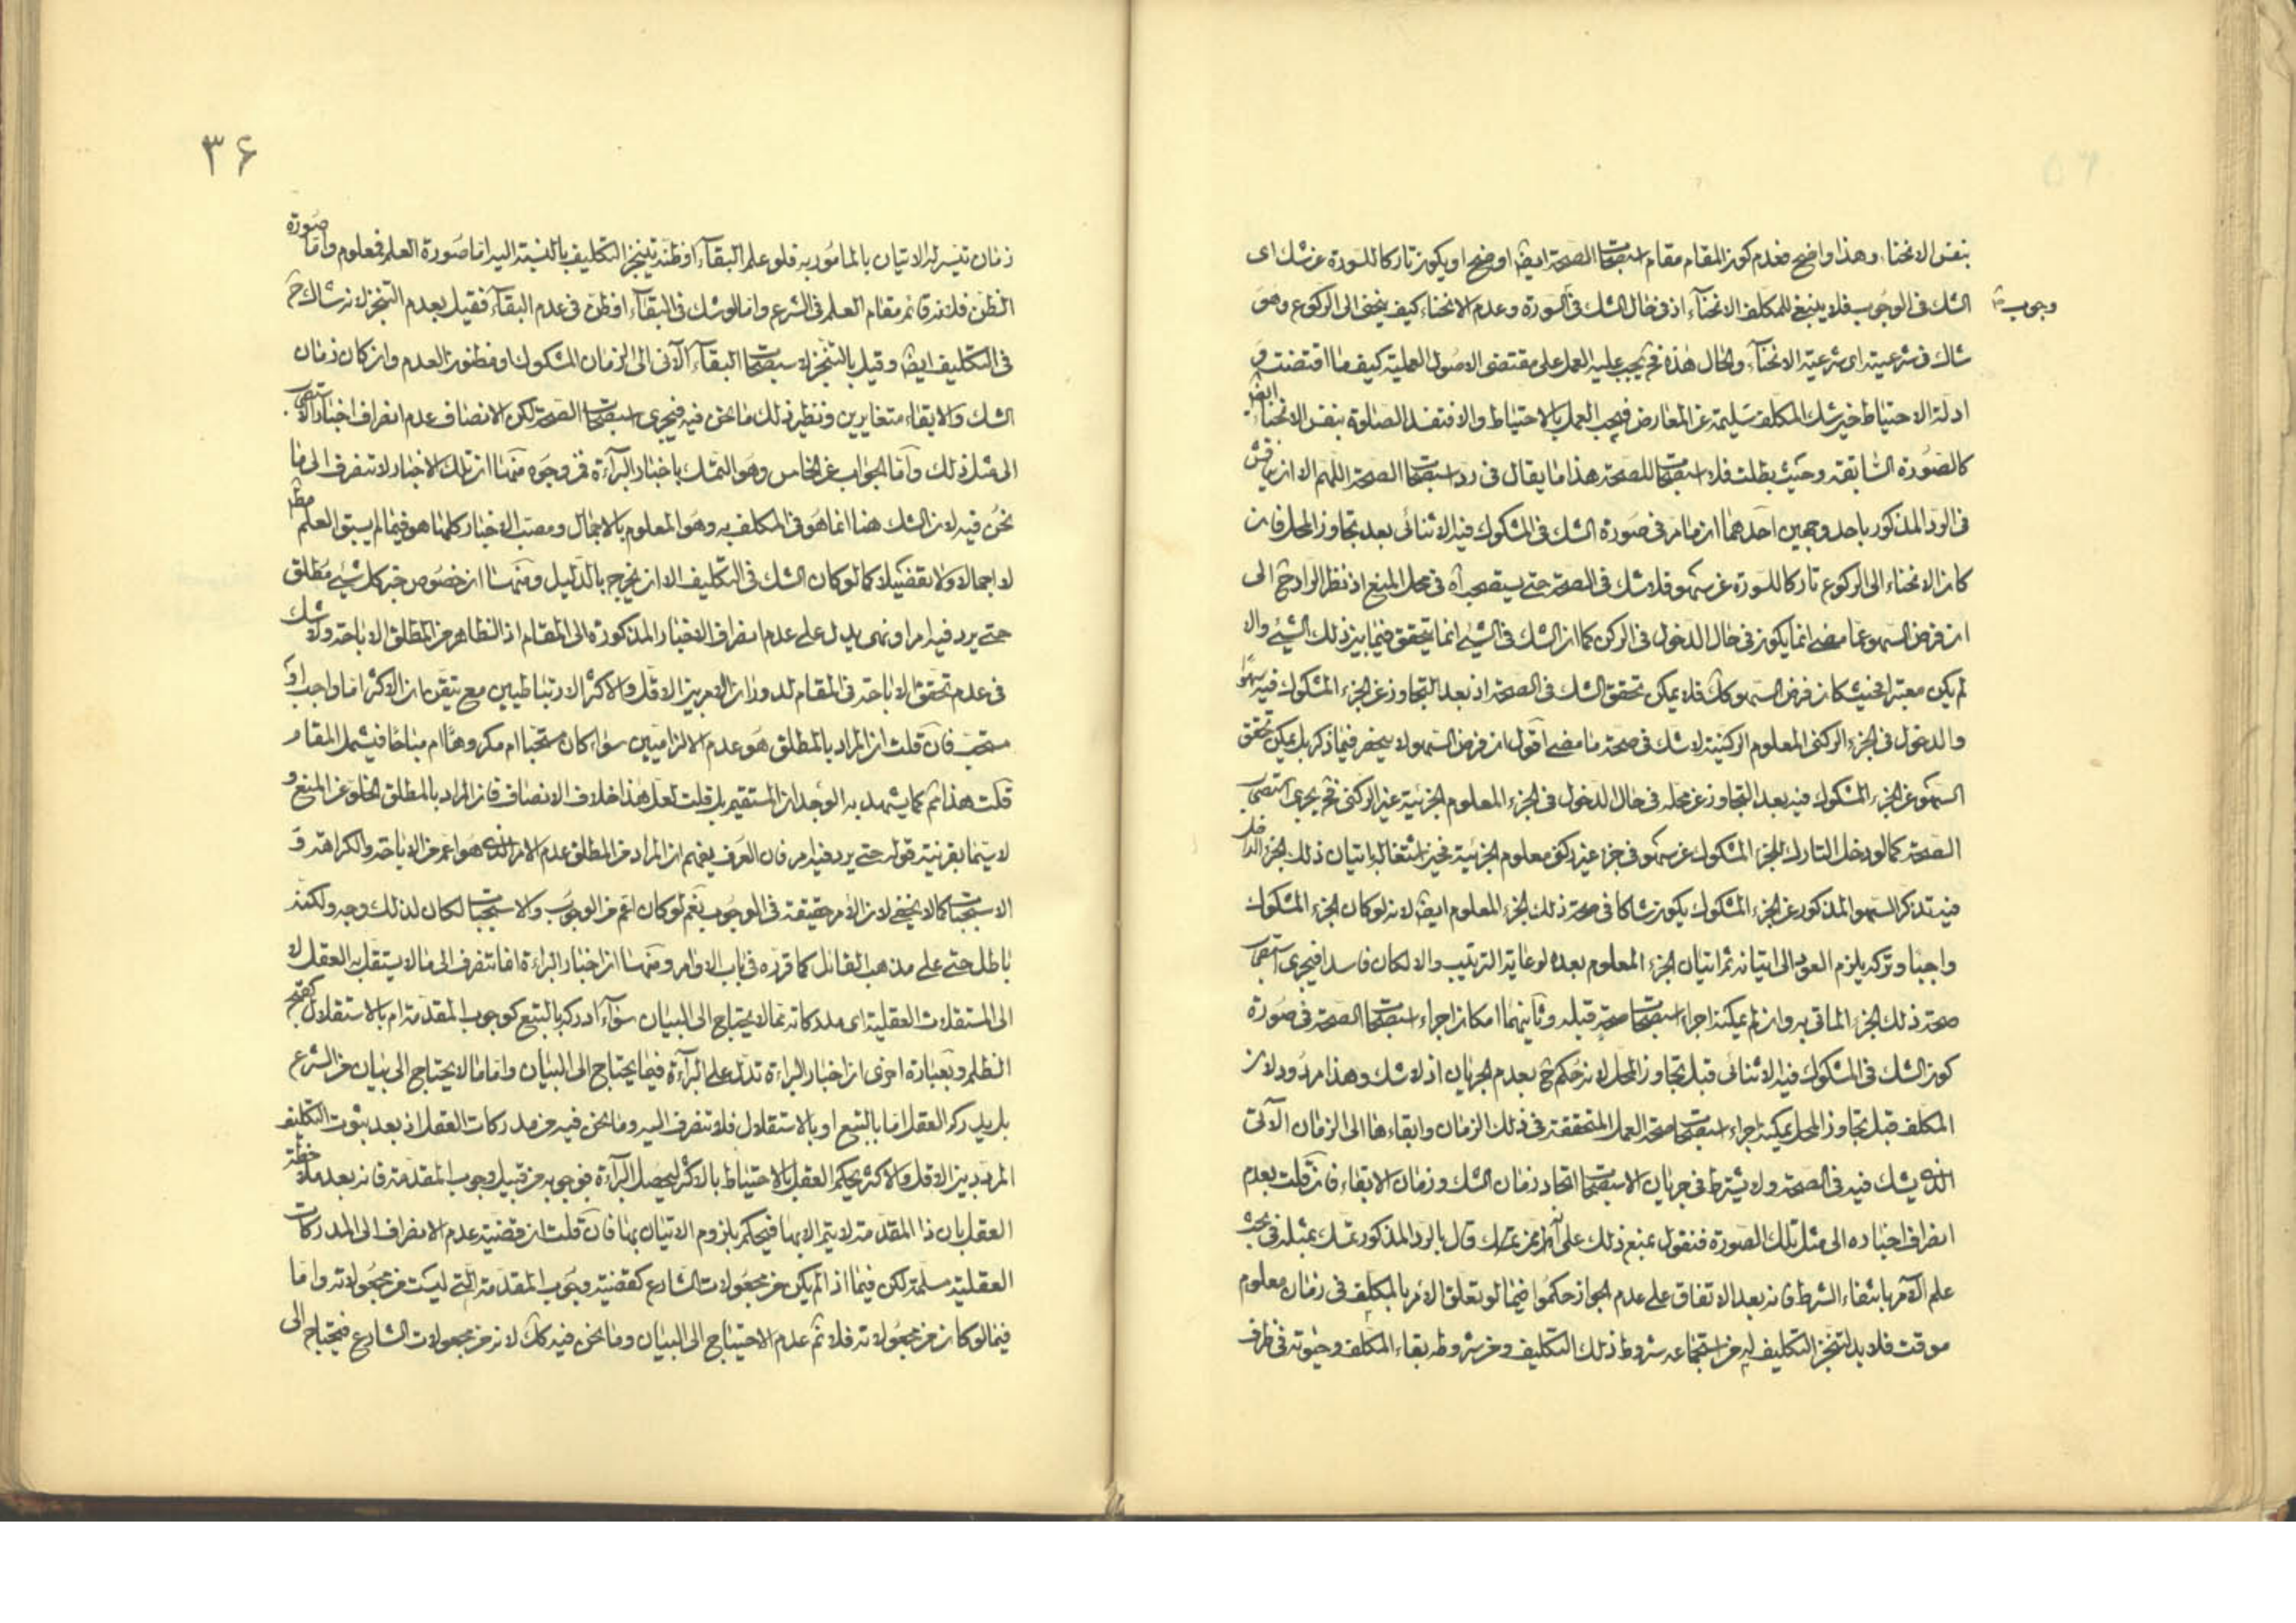 بنفس الانحناء وهذا واضح فعدم كون المقام مقام استصحاب الصحة ايضا اوضح او يكون تاركا للسورة عن شك اى
الشك فى الوجوب فلا ينبغى للمكلف الانحناء اذ فى حال الشك فى السورة وعدم الانحناء كيف ينحنى الى الركوع وهو
وجوب
شاك فى شرعيته اى شرعية الانحناء والحال هذه فح يجب عليه العمل على مقتضى الاصول العملية كيف ما اقتضت و
ادلة الاحتياط حين شك المكلف سليمة عن المعارض فيجب العمل بالاحتياط والا فتفسد الصلوة بنفس الانحناء ايضا
كالصورة السابقة وحيث بطلت فلا استصحاب للصحة هذا ما يقال فى رد استصحاب الصحة اللهم الا ان يناقش
فى الرد المذكور باحد وجهين احدهما ان ما مر فى صورة الشك فى المشكوك فيه الاثنائى بعد تجاوز المحل فان
كان الانحناء الى الركوع تاركا للسورة عن سهو فلا شك فى الصحة حتى يستصحب اه فى محل المنع اذ نظر الراد ح الى
ان فرض السهو عما مضى انما يكون فى حال الدخول فى الركن كما ان الشك فى الشىء انما يتحقق فيما بين ذلك الشىء والا
لم يكن معتبرا فحيث كان فرض السهو كك فلا يمكن تحقق الشك فى الصحة اذ بعد التجاوز عن الجزء المشكوك فيه سهوا
والدخول فى الجزء الركنى المعلوم الركنية لا شك فى صحة ما مضى اقول ان فرض السهو لا ينحصر فيما ذكر بل يمكن تحقق
السهو عن الجزء المشكوك فيه بعد التجاوز عن محله فى حال الدخول فى الجزء المعلوم الجزئية غير الركنى فح يجرى استصحاب
الصحة كما لو دخل التارك للجزء المشكوك عن سهو فى جزء غير ركنى معلوم الجزئية فحين اشتغاله باتيان ذلك الجزء الداخل
فيه تذكر السهو المذكور عن الجزء المشكوك يكون شاكا فى صحة ذلك الجزء المعلوم ايضا لانه لو كان الجزء المشكوك
واجبا وتركه يلزم العود الى اتيانه ثم اتيان الجزء المعلوم بعده لرعاية الترتيب والا لكان فاسدا فيجرى استصحاب
صحة ذلك الجزء الماتى به وان لم يمكنه اجراء استصحاب صحة قبله وثانيهما امكان اجراء استصحاب الصحة فى صورة
كون الشك فى المشكوك فيه الاثنائى قبل تجاوز المحل لانه حكم ح بعدم الجريان اذ لا شك وهذا مردود لان
المكلف قبل تجاوز المحل يمكنه اجراء استصحاب صحة العمل المتحققة فى ذلك الزمان وابقاءها الى الزمان الآتى
الذى يشك فيه فى الصحة ولا يشترط فى جريان الاستصحاب اتحاد زمان الشك وزمان الابقاء فان قلت بعدم
انصراف اخباره الى مثل تلك الصورة فنقول نمنع ذلك على انه ممن تمسك وقال بالرد المذكور تمسك بمثله فى بحث
علم الآمر بانتفاء الشرط فانه بعد الاتفاق على عدم الجواز حكموا فيما لو تعلق الامر بالمكلف فى زمان معلوم
موقت فلا بد لتنجز التكليف له من استجماعه شروط ذلك التكليف ومن شروطه بقاء المكلف وحيوته فى ظرف
۳۶
زمان تيسر له الاتيان بالمامور به فلو علم البقاء او ظنه تنجز التكليف بالنسبة اليه اما صورة العلم فمعلوم واما صورة
الظن فلانه قائم مقام العلم فى الشرع واما لو شك فى البقاء او ظن فى عدم البقاء فقيل بعدم التنجز لانه شاك ح
فى التكليف ايضا وقيل بالتنجز لاستصحاب البقاء الآتى الى الزمان المشكوك او مظنون العدم وان كان زمان
الشك والابقاء متغايرين ونظير ذلك ما نحن فيه فيجرى استصحاب الصحة لكن الانصاف عدم انصراف اخبار الاستصحاب
الى مثل ذلك واما الجواب عن الخامس وهو التمسك باخبار البراءة فمن وجوه منها ان تلك الاخبار لا تنصرف الى ما
نحن فيه لان الشك هنا انما هو فى المكلف به وهو المعلوم بالاجمال ومصب الاخبار كلها هو فيما لم يسبق العلم مط
لا اجمالا ولا تفصيلا كما لو كان الشك فى التكليف الا ان يخرج بالدليل ومنها ان خصوص خبر كل شىء مطلق
حتى يرد فيه امر او نهى يدل على عدم انصراف الاخبار المذكورة الى المقام اذ الظاهر من المطلق الاباحة ولا شك
فى عدم تحقق الاباحة فى المقام لدوران الامر بين الاقل والاكثر الارتباطيين مع تيقن ان الاكثر اما واجب او
مستحب فان قلت ان المراد بالمطلق هو عدم الالزاميين سواء كان مستحبا ام مكروها ام مباحا فيشمل المقام
قلت هذا ثم كما يشهد به الوجدان المستقيم بل قلت لعل هذا خلاف الانصاف فان المراد بالمطلق الخلو عن المنع و
لا سيما بقرينة قوله حتى يرد فيه امر فان العرف يفهم ان المراد من المطلق عدم الامر الذى هو اعم من الاباحة والكراهة و
الاستحباب كما لا يخفى لان الامر حقيقة فى الوجوب نعم لو كان اعم من الوجوب والاستحباب لكان لذلك وجه ولكنه
باطل حتى على مذهب القائل كما قرره فى باب الاوامر ومنها ان اخبار البراءة انما تنصرف الى ما لا يستقل به العقل لا
الى المستقلات العقلية اى مدركاته مما لا يحتاج الى البيان سواء ادركه بالتبع كوجوب المقدمة ام بالاستقلال كقبح
الظلم وبعبارة اخرى ان اخبار البراءة تدل على البراءة فيما يحتاج الى البيان واما ما لا يحتاج الى بيان من الشرع
بل يدركه العقل اما بالتبع او بالاستقلال فلا تنصرف اليه وما نحن فيه من مدركات العقل اذ بعد ثبوت التكليف
المردد بين الاقل والاكثر يحكم العقل بالاحتياط بالاكثر ليحصل البراءة فوجوبه من قبيل وجوب المقدمة فانه بعد ملاحظة
العقل بان ذا المقدمة لا يتم الا بها فيحكم بلزوم الاتيان بها فان قلت ان قضية عدم الانصراف الى المدركات
العقلية مسلمة لكن فيما اذا لم يكن من مجعولات الشارع كقضية وجوب المقدمة التى ليست من مجعولاته واما
فيما لو كان من مجعولاته فلا ثم عدم الاحتياج الى البيان وما نحن فيه كك لانه من مجعولات الشارع فيحتاج الى